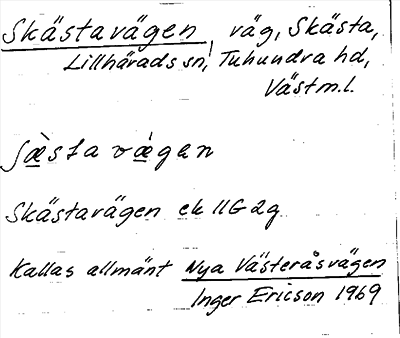 Skästavägen, väg, Skästa,
Lillhärads sn, Tuhundra hd,
Västm.l.
ʃæ̀sta vǽgen
Skästavägen ek 11G 2g
Kallas allmänt Nya Västeråsvägen
Inger Ericson 1969